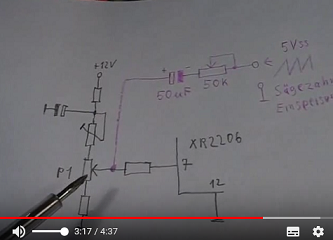 +12V
+
5Vss
50uF
50K
Sägezahn
Einspeisu
XR2206
P1
7
12
3:17 / 4:37